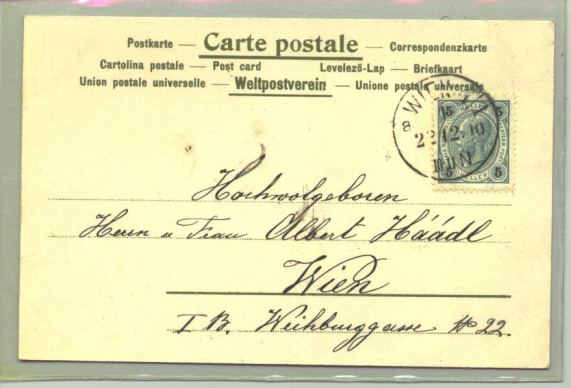 Postkarte — Carte postale — Correspondenzkarte
Cartolina postale — Post card Levelező-Lap — Briefkaart
Union postale universelle — Weltpostverein — Unione postale universale
WIEN
5 5
5 5
Hochwolgeboren
Herrn u Frau Albert Háádl
Wien
I B. Weihburggasse No 22.